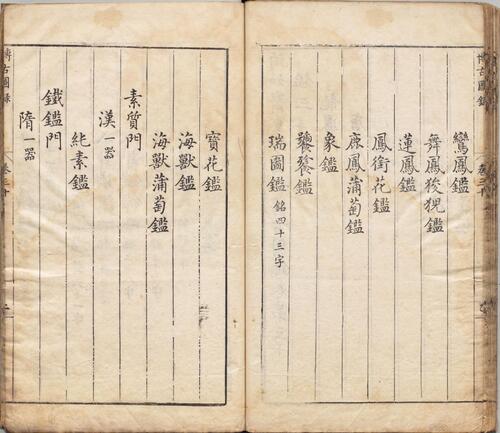 鸞鳳鑑
舞鳳狻猊鑑
蓮鳳鑑
鳳銜花鑑
麻鳳蒲萄鑑
象鑑
饕餮鑑
瑞圖鑑 銘四十三字
寶花鑑
海獸鑑
海獸蒲萄鑑
素質門
漢一器
純素鑑
鐵鑑門
隋一器
博古圖錄
卷三十